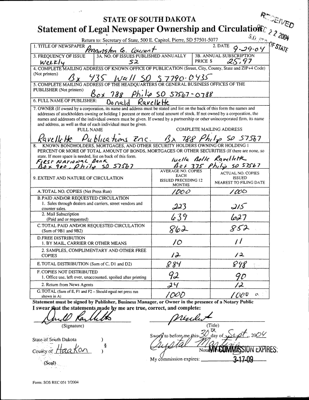 RECEIVED
STATE OF SOUTH DAKOTA
Statement of Legal Newspaper Ownership and Circulation
Return to: Secretary of State, 500 E. Capitol, Pierre, SD 57501-5077
1. TITLE OF NEWSPAPER
Courant
2. DATE
9-29-04
3. FREQUENCY OF ISSUE
Weekly
3A. NO. OF ISSUES PUBLISHED ANNUALLY
52
3B. ANNUAL SUBSCRIPTION PRICE
$ 25.97
4. COMPLETE MAILING ADDRESS OF KNOWN OFFICE OF PUBLICATION (Street, City, County, State and ZIP+4 Code)
(Not printers)
Box 435 Wall SD 57790-0435
5. COMPLETE MAILING ADDRESS OF THE HEADQUARTERS OR GENERAL BUSINESS OFFICES OF THE
PUBLISHER (Not printers)
Box 788 Philip SD 57567-0788
6. FULL NAME OF PUBLISHER:
Donald Ravellette
7. OWNER (If owned by a corporation, its name and address must be stated and listed on the back of this form the names and
addresses of stockholders owning or holding 1 percent or more of total amount of stock. If not owned by a corporation, the
names and addresses of the individual owners must be given. If owned by a partnership or other unincorporated firm, its name
and address, as well as that of each individual must be given.
FULL NAME
COMPLETE MAILING ADDRESS
Ravellette Publications Inc.
Box 788 Philip SD 57567
8. KNOWN BONDHOLDERS, MORTGAGES, AND OTHER SECURITY HOLDERS OWNING OR HOLDING 1
PERCENT OR MORE TOTAL AMOUNT OF BONDS, MORTGAGES OR OTHER SECURITIES (If there are none, so
state. If more space is needed, list on back of this form.
First National Bank
Belle Ravellette
Philip SD 57567
Box 375 Philip SD 57567
9. EXTENT AND NATURE OF CIRCULATION
AVERAGE NO. COPIES EACH ISSUED PRECEDING 12 MONTHS
ACTUAL NO. COPIES ISSUED NEAREST TO FILING DATE
A. TOTAL NO. COPIES (Net Press Run)
1000
1000
B. PAID AND/OR REQUESTED CIRCULATION
1. Sales through dealers and carriers, street vendors and
counter sales.
223
215
2. Mail Subscription
(Paid and/or requested)
639
627
C. TOTAL PAID AND/OR REQUESTED CIRCULATION
(Sum of 9B1 and 9B2)
862
852
D. FREE DISTRIBUTION
1. BY MAIL, CARRIER OR OTHER MEANS
10
11
2. SAMPLES, COMPLIMENTARY AND OTHER FREE
COPIES
12
12
E. TOTAL DISTRIBUTION (Sum of C, D1 and D2)
884
898
F. COPIES NOT DISTRIBUTED
1. Office use, left over, unaccounted, spoiled after printing
92
90
2. Return from News Agents
24
12
G. TOTAL (Sum of E, F1 and F2 - Should equal net press run
shown in A)
1000
1000
Statement must be signed by Publisher, Business Manager, or Owner in the presence of a Notary Public
I swear that the statements made by me are true, correct, and complete:
(Signature)
President
(Title)
State of South Dakota
County of Haakon
(Seal)
Sworn to before me this 30 day of Sept. 2004
Crystal
Notary
MY COMMISSION EXPIRES:
My commission expires:
3-17-09
Form: SOS REC 051 9/2004